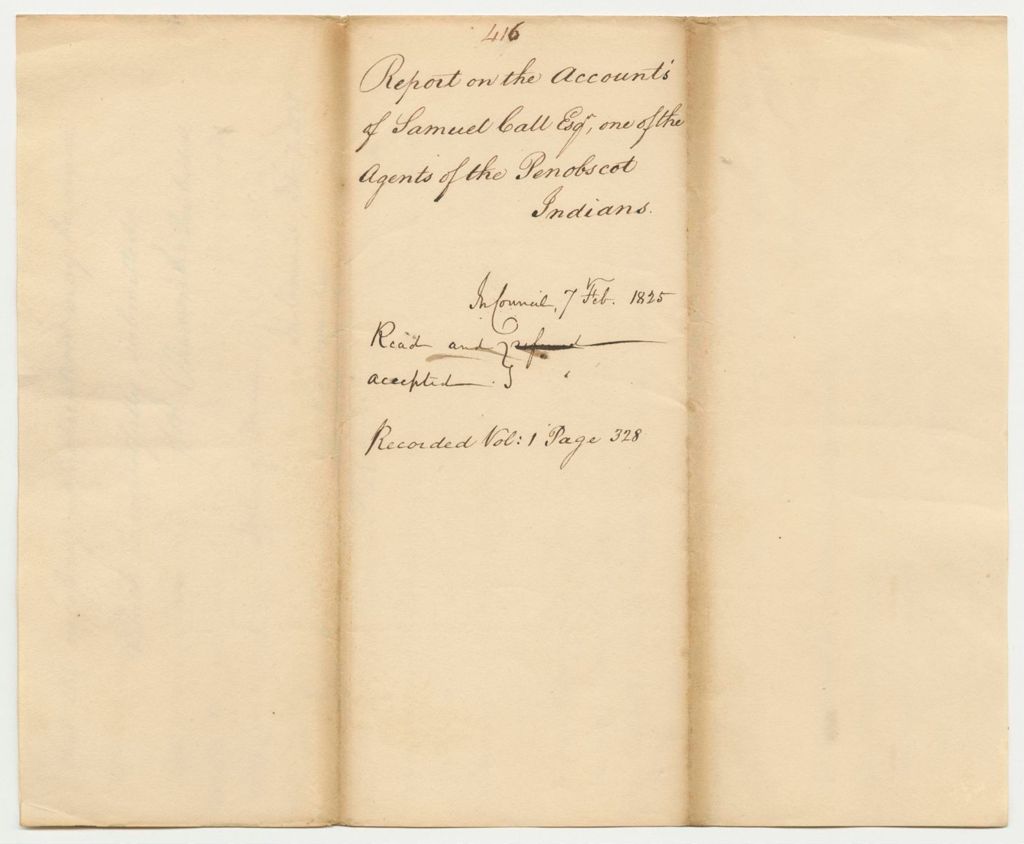 416
Report on the Accounts
of Samuel Call Esqr, one of the
Agents of the Penobscot
Indians.
In Council, 7 Feb. 1825
Read and
accepted.
Recorded Vol: 1 Page 328